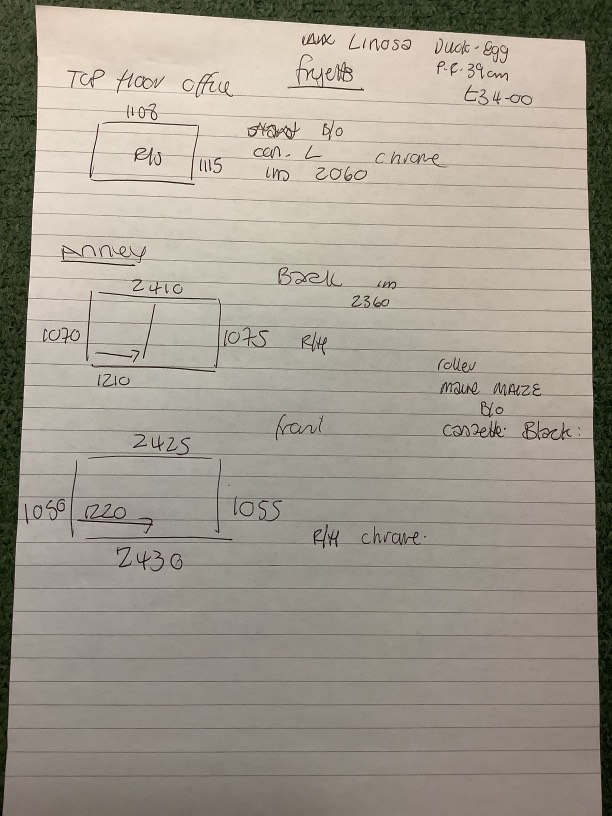 Linosa Duck-Egg
fryetts P.R. 39cm
£34-00
TOP floor office
1108
R/O
1115
B/O
con. L chrome
im 2060
Annex
2410
Back im
2360
1070
1075 R/H
1210
roller
MAIZE
B/O
cassette Black:
front
2425
1050
1220
1055
R/H chrome.
2430